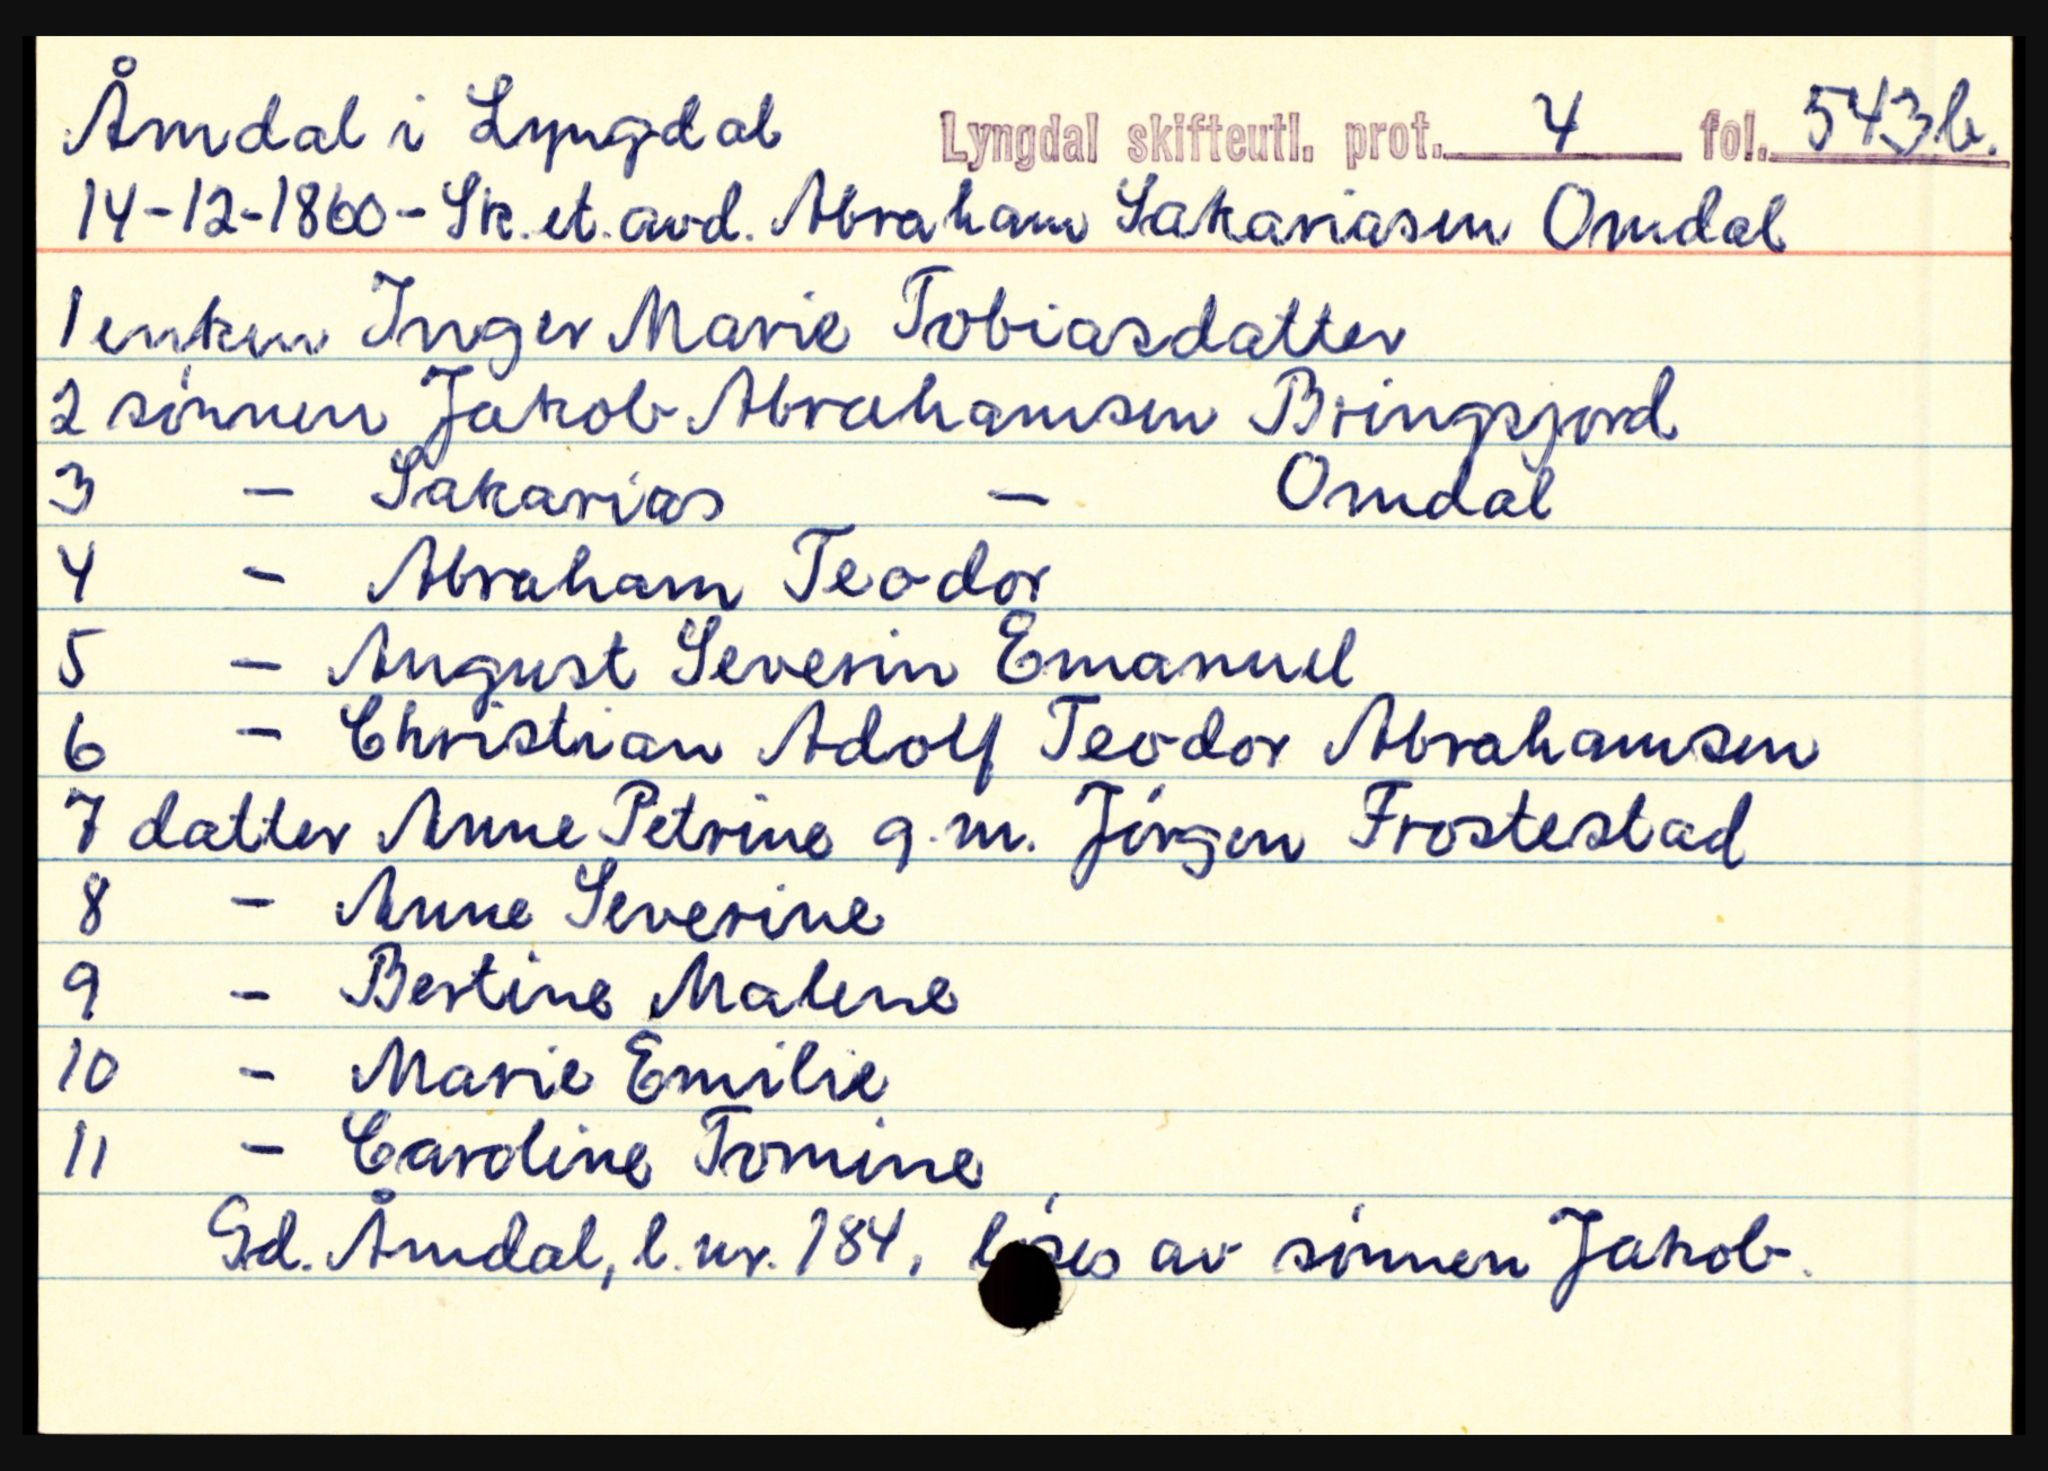 Åmdal i Lyngdal Lyngdal skifteutl. prot. 4 fol. 543b.
14-12-1860 - Sk. et. avd. Abraham Sakariasen Omdal
1 enken Inger Marie Tobiasdatter
2 sönnen Jakob Abrahamsen Bringsjord
3 - Sakarias - Omdal
4 - Abraham Teodor
5 - August Severin Emanuel
6 - Christian Adolf Teodor Abrahamsen
7 datter Anne Petrine g.m. Jörgen Frostestad
8 - Anne Severine
9 - Bertine Malene
10 - Marie Emilie
11 - Caroline Tomine
Gd. Åmdal, l.nr. 184, löses av sönnen Jakob.